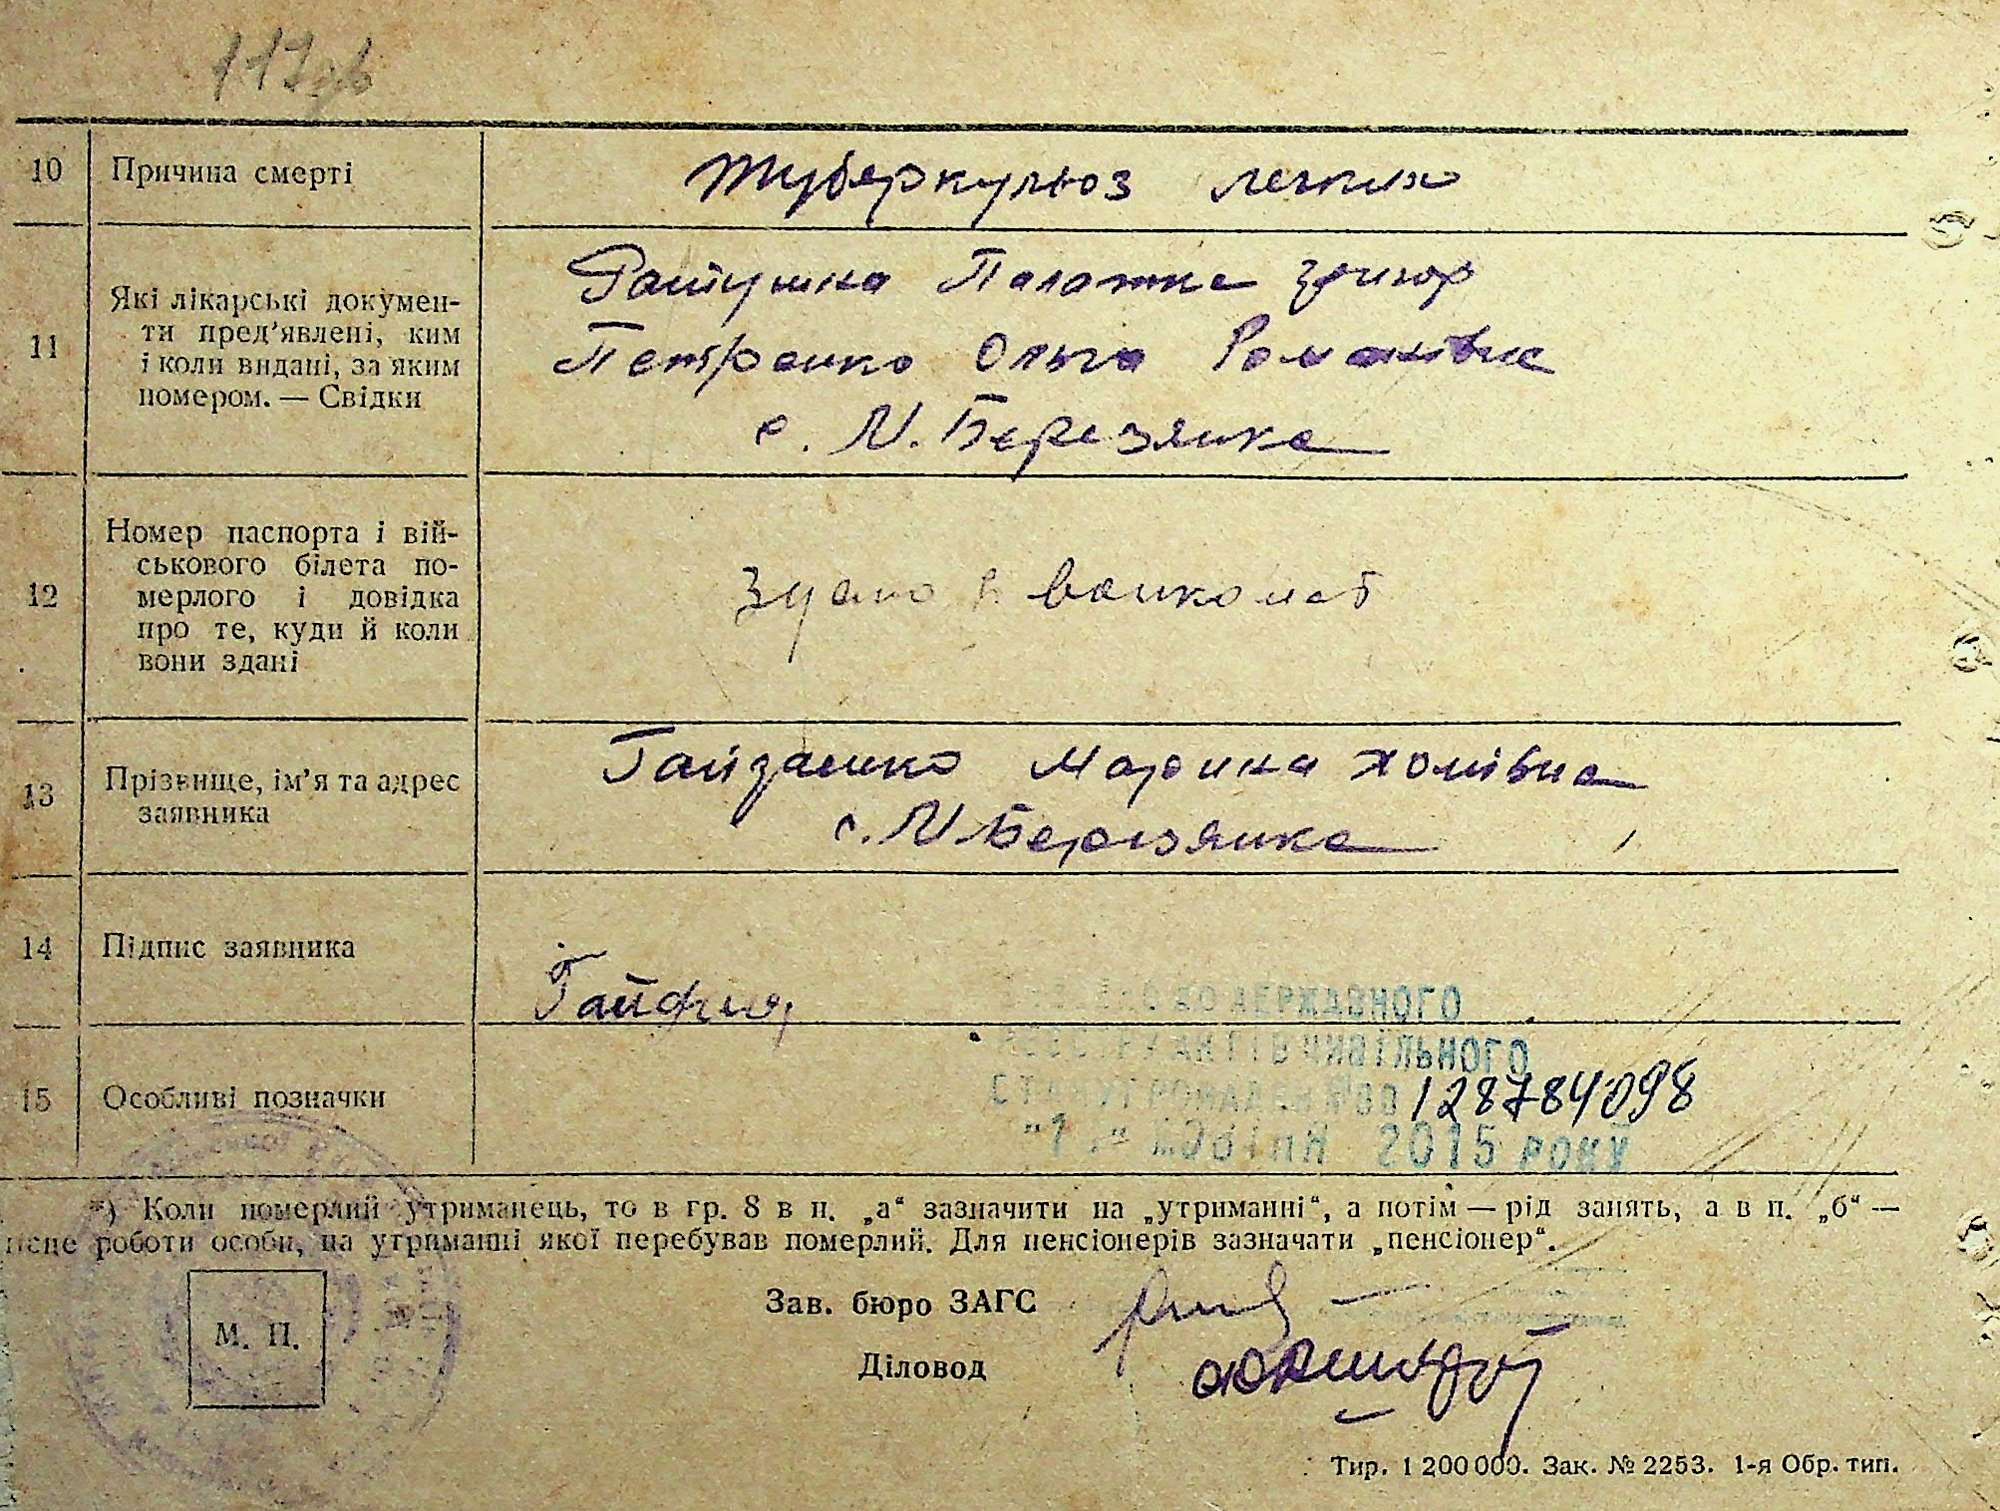 117 зв
10 Причина смерті Туберкульоз легких
11 Які лікарські докумен-
ти пред'явлені, ким
і коли видані, за яким
номером. — Свідки
Палажка Григор
Петренко Ольга Романівна
с. М. Березянка
12 Номер паспорта і вій-
ськового білета по-
мерлого і довідка
про те, куди й коли
вони здані
Здано в военкомат
13 Прізвище, ім'я та адрес
заявника
Гайзенко Марина Хомівна
с. М Березянка
14 Підпис заявника
ДО ДЕРЖАВНОГО
АКТІВ ЦИВІЛЬНОГО
15 Особливі позначки
СТАНУ ГРОМАДЯН №00128784098
2015 РОКУ
*) Коли померлий утриманець, то в гр. 8 в п. „а“ зазначити на „утриманні“, а потім — рід занять, а в п. „б“ —
місце роботи особи, на утриманні якої перебував померлий. Для пенсіонерів зазначати „пенсіонер“.
М. П.
Зав. бюро ЗАГС
Діловод
Тир. 1 200 000. Зак. № 2253. 1-я Обр. тип.